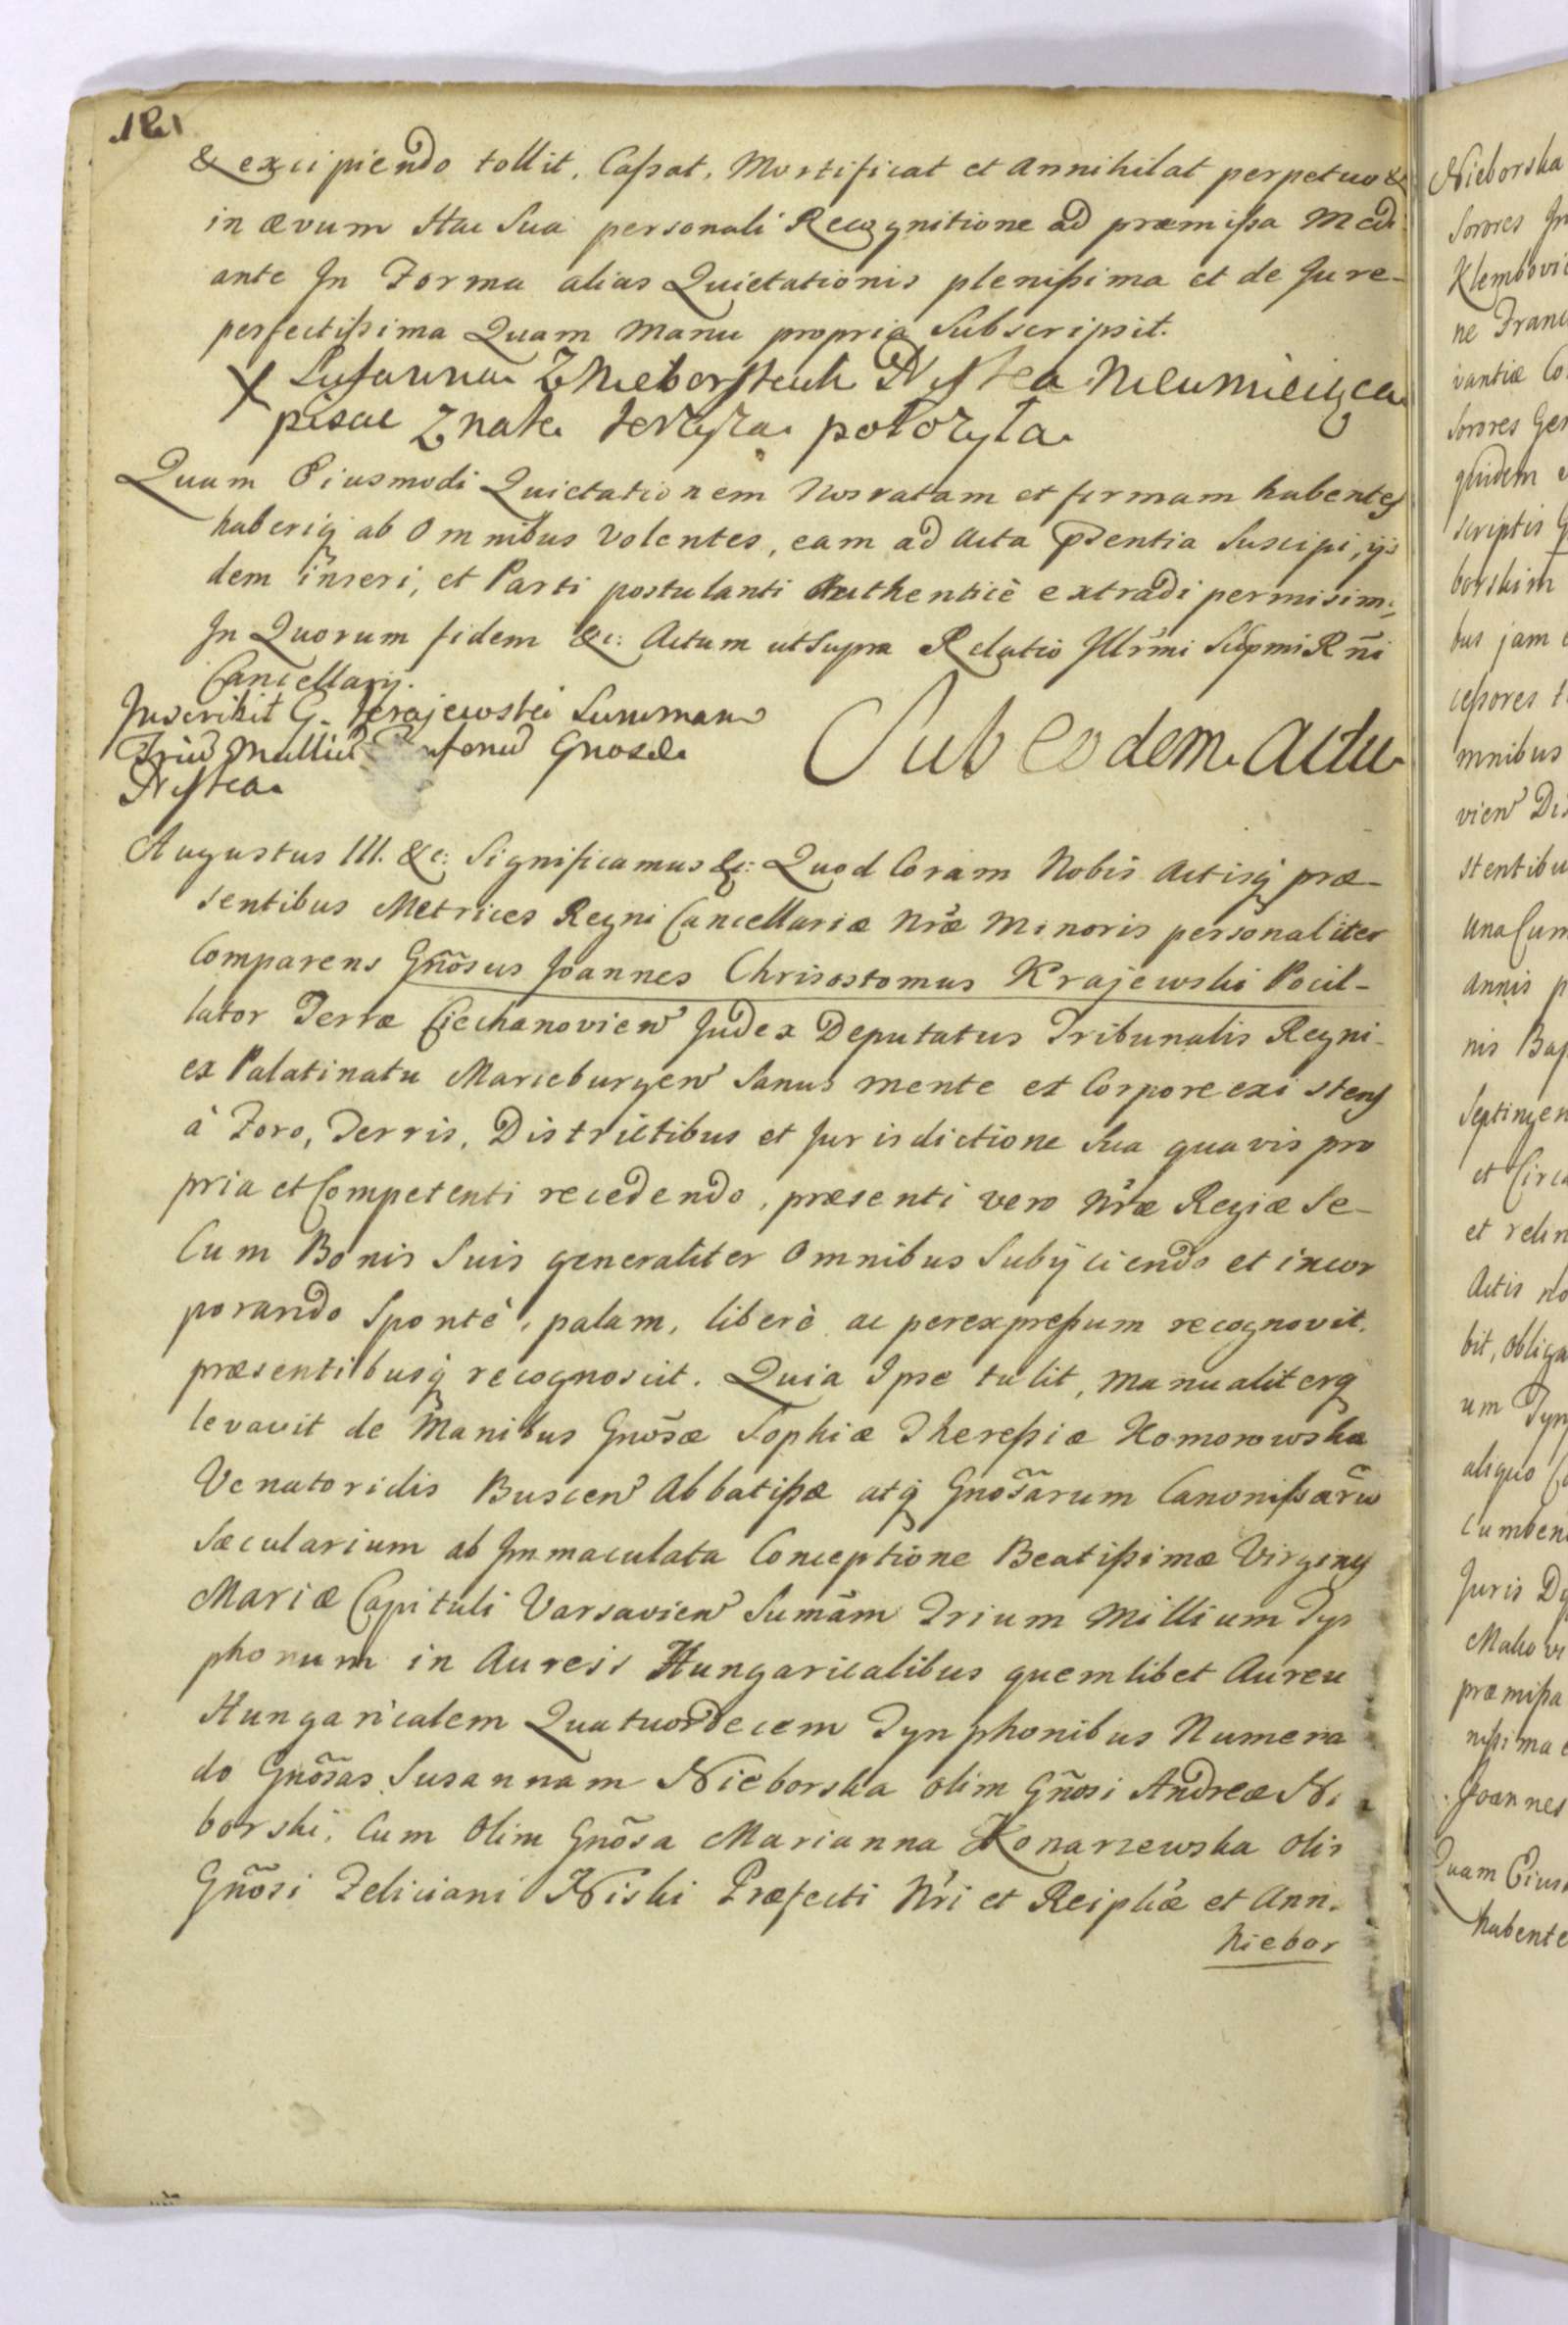 & excipiendo tollit, Cassat, Mortificat et annihilat perpetuo &
in ævum Hac Sua personali Recognitione ad præmissa Medi
ante In Forma alias Quietationis plenissima et de Jure
perfectissima Quam Manu propria Subscripsit.
X Zuzanna Z Nieborskich Niska nieumieiąca
pisac Znak krzyza połozyła
Quam Eiusmodi Quietationem Nos ratam et firmam habentes
haberiq ab Omnibus Volentes, eam ad Acta pñtentia Suscipi, ijs
dem inseri, et Parti postulanti Authenticè extradi permisim,
In Quorum fidem &c: Actum ut Supra Relatio Illrmi Suprmi R ñi
Cancellarij.
Inscribit G. Krajewski Summam
Triu Milliu Tynfonu Gnosæ
Niska
Sub eodem Actu
Augustus III. &c: Significamus &c: Quod Coram Nobis Actisq præ-
sentibus Metrices Regni Cancellariæ Nræ Minoris personaliter
Comparens Gnõsus Joannes Chrisostomus Krajewski Pocil-
lator Terræ Ciechanovien Judex Deputatus Tribunalis Regni
ex Palatinatu Marieburgen Sanus mente et Corpore existens
à Foro, Terris, Districtibus et Jurisdictione Sua quavis pro
pria et Competenti recedendo, præsenti vero Nræ Regiæ Se
Cum Bonis Suis generaliter Omnibus Subijciendo et incor
porando Spontè, palam, liberè ac per expressum recognovit,
præsentibusq recognoscit. Quia Ipse tulit, manualiterq
levavit de Manibus Gnosæ Sophiæ Theressiæ Komorowska
Venatoridis Buscen Abbatissæ atq Gnosarum Canonissaru
Sæcularium ab Immaculata Conceptione Beatissimæ Virginis
Mariæ Capituli Varsavien Sumãm Trium Millium Tyn
phonum in Aureis Hungaricalibus quemlibet Aureu
Hungaricalem Quatuordecem Tynphonibus Numera
do Gnõsas Susannam Nieborska olim Gñosi Andreæ Ni
borski, Cum Olim Gnõsa Marianna Konarzewska Oli
Gñosi Feliciani Niski Præfecti Nri et Reiplicæ et Ann.
Niebor